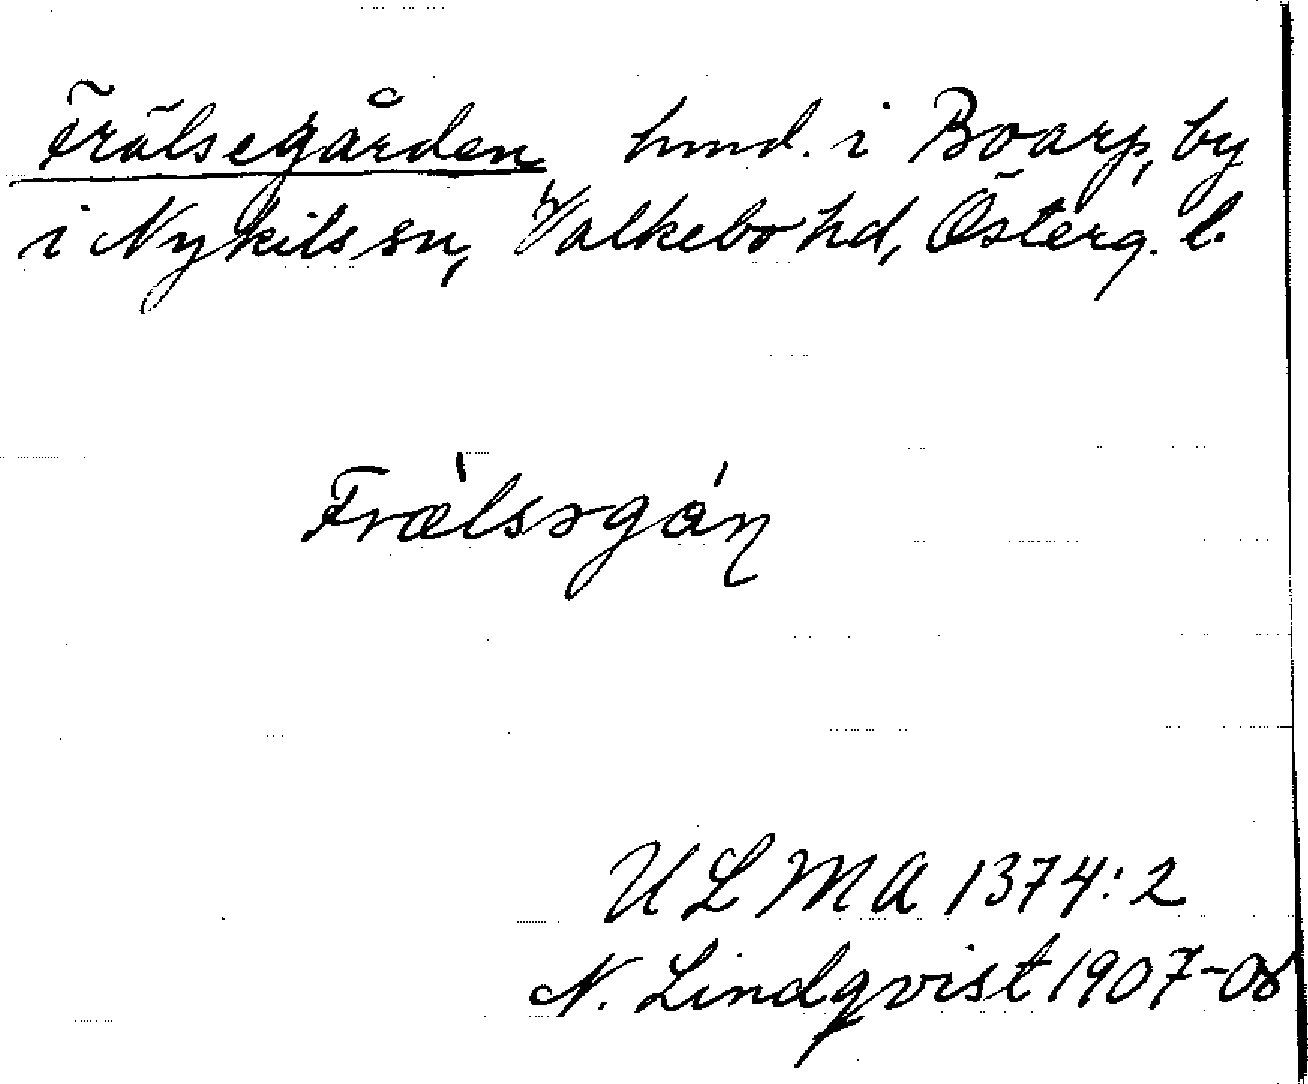 Frälsegården hmd. i Boarp, by
i Nykils sn, Valkebo hd, Österg. l.
Frælsəgáɳ
ULMA 1374:2
N. Lindqvist 1907-08